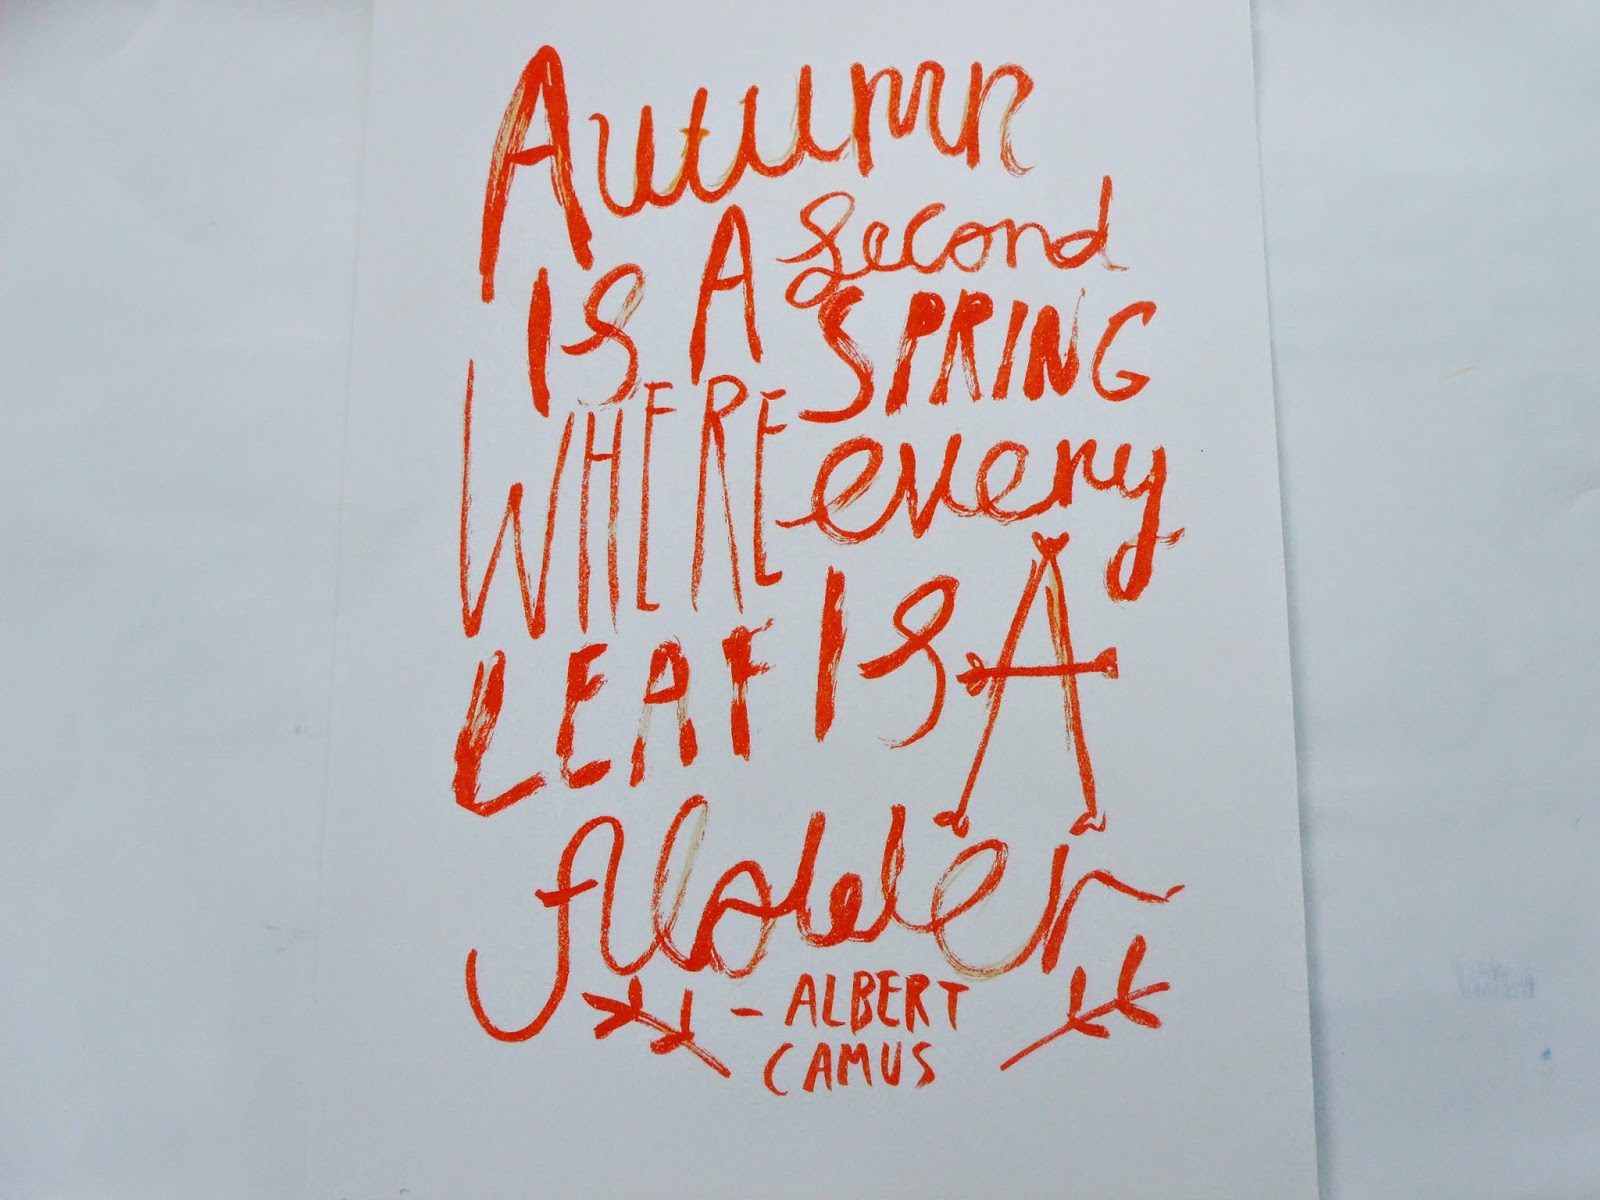 Autumn
IS A second
SPRING
WHERE every
LEAF IS A
flower
- ALBERT
CAMUS